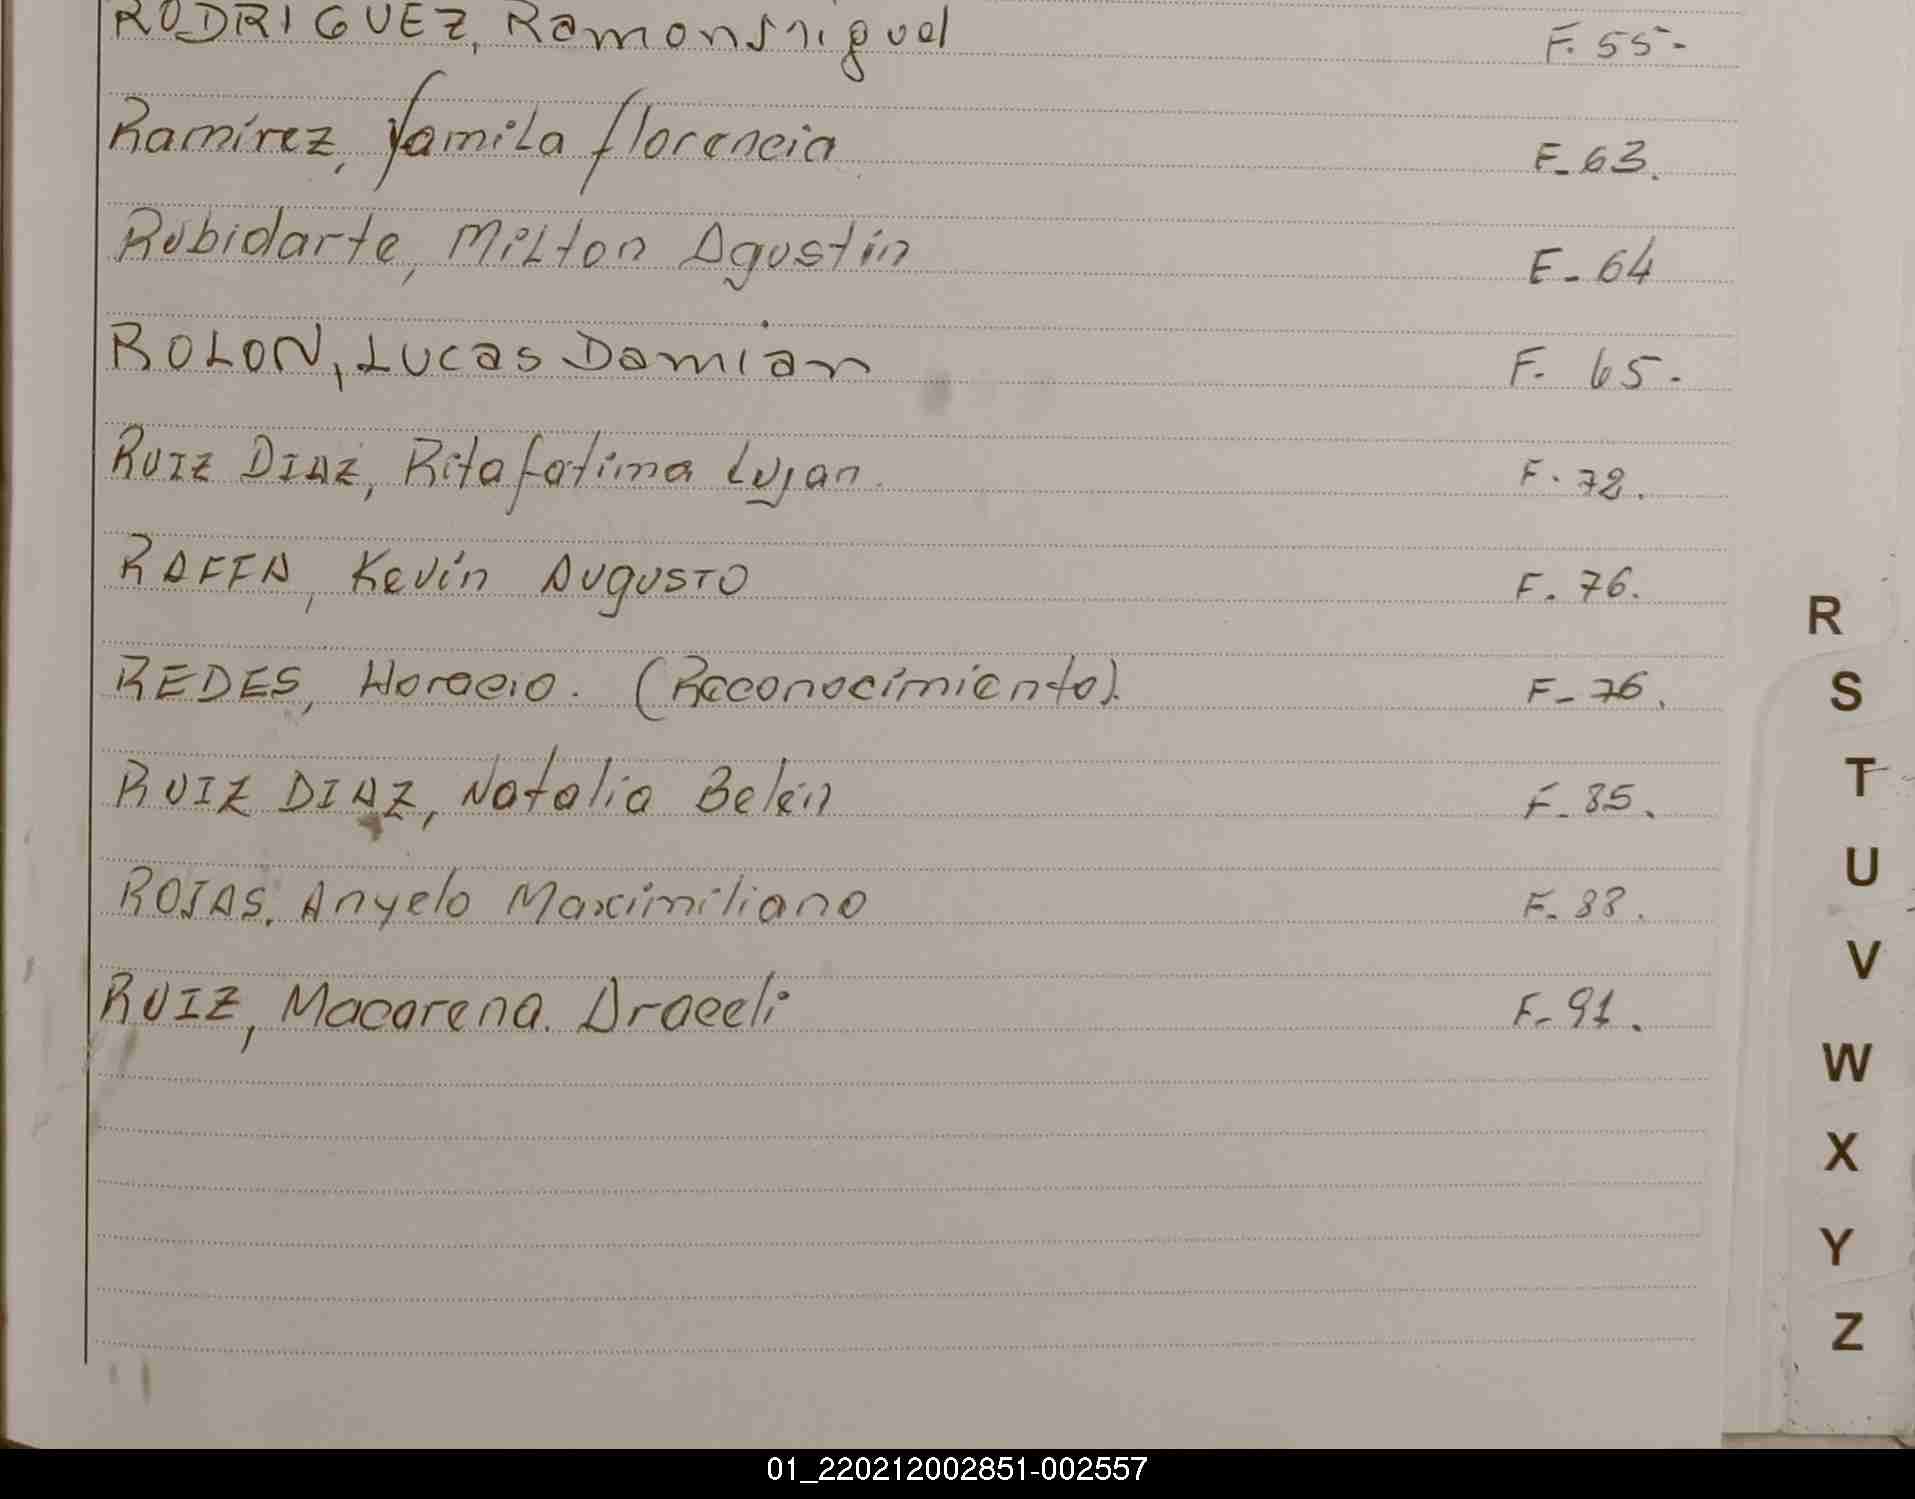 RODRIGUEZ, Ramon Miguel F. 55-
Ramírez, Yamila florencia F_ 63.
Rubidarte, Milton Agustín F_ 64
ROLON, Lucas Damian F. 65.
RUIZ DIAZ, Rita fatima Lujan. F. 72.
RAFFA, Kevin AUGUSTO F. 76.
REDES, Horacio. (Reconocimiento). F_ 76.
RUIZ DIAZ, Natalia Belén F_ 85.
ROJAS, Anyelo Maximiliano F_ 88.
RUIZ, Macarena. Araceli F_ 91.
R
S
T
U
V
W
X
Y
Z
01_220212002851-002557